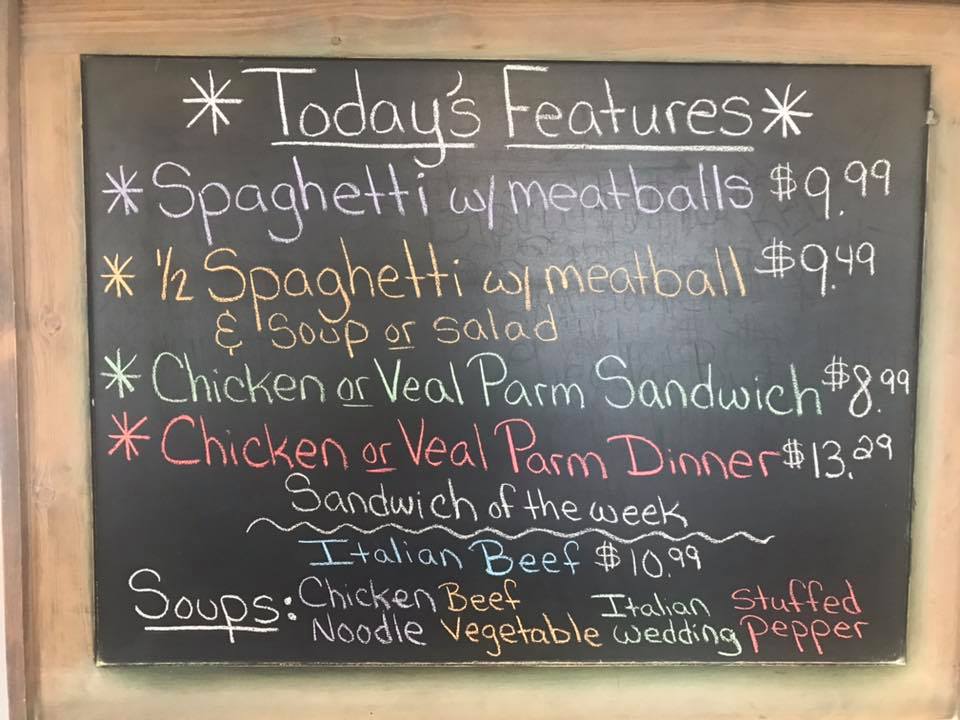 * Today's Features *
* Spaghetti w/ meatballs $9.99
* 1/2 Spaghetti w/ meatball $9.49
& Soup or salad
* Chicken or Veal Parm Sandwich $8.99
* Chicken or Veal Parm Dinner $13.29
Sandwich of the week
Italian Beef $10.99
Soups: Chicken Beef Italian Stuffed
Noodle Vegetable wedding pepper